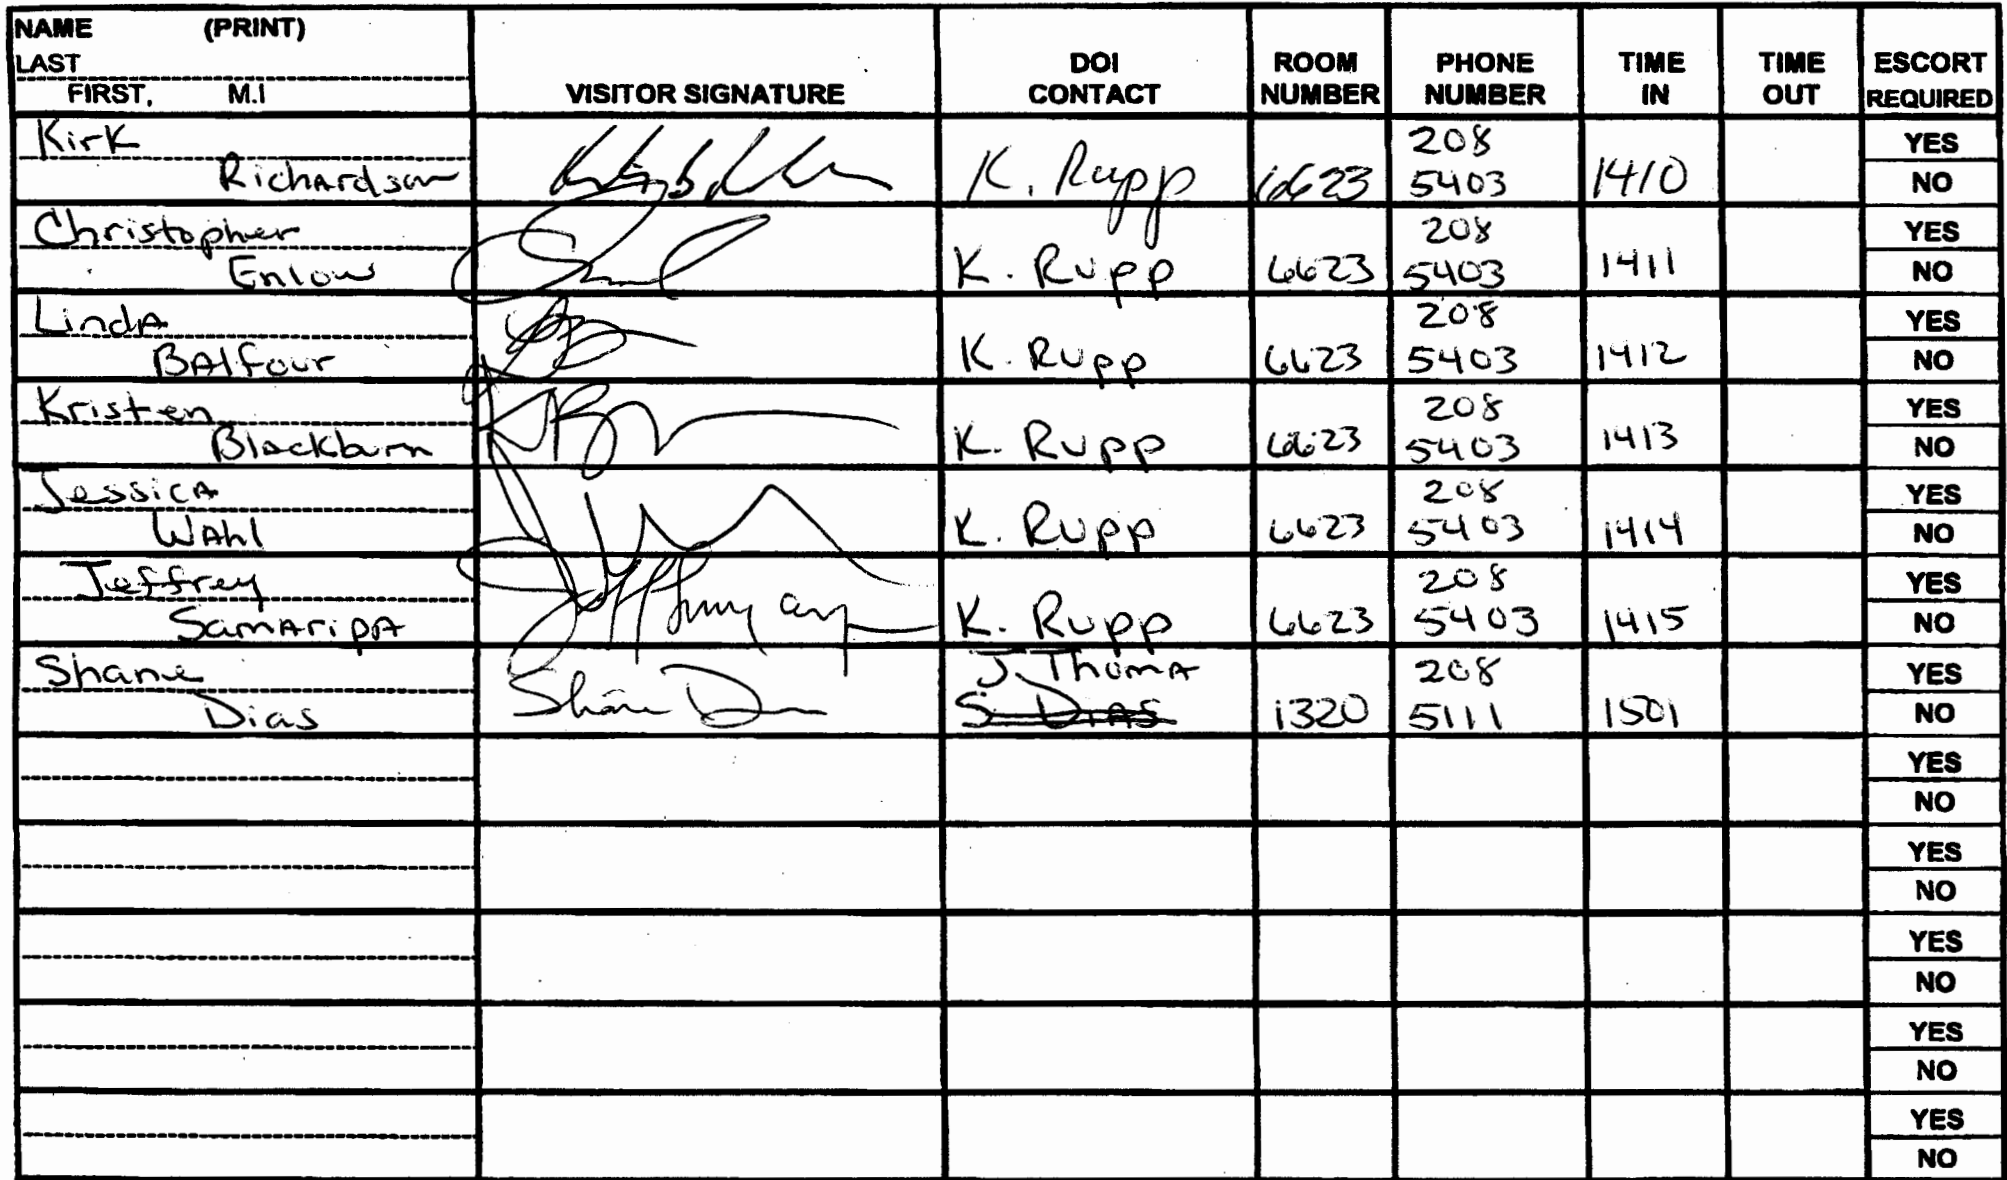 NAME (PRINT)
LAST
FIRST, M.I
VISITOR SIGNATURE
DOI
CONTACT
ROOM
NUMBER
PHONE
NUMBER
TIME
IN
TIME
OUT
ESCORT
REQUIRED
Kirk
Richardson
K. Rupp
6623
208
5403
1410
YES
NO
Christopher
Enlow
K. Rupp
6623
208
5403
1411
YES
NO
Linda
BAlfour
K. Rupp
6623
208
5403
1412
YES
NO
Kristen
Blackburn
K. Rupp
6623
208
5403
1413
YES
NO
Jessica
WAhl
K. Rupp
6623
208
5403
1414
YES
NO
Jeffrey
SamAripA
K. Rupp
6623
208
5403
1415
YES
NO
Shane
Dias
Shane
J. ThomA
S. DIAS
1320
208
5111
1501
YES
NO
YES
NO
YES
NO
YES
NO
YES
NO
YES
NO